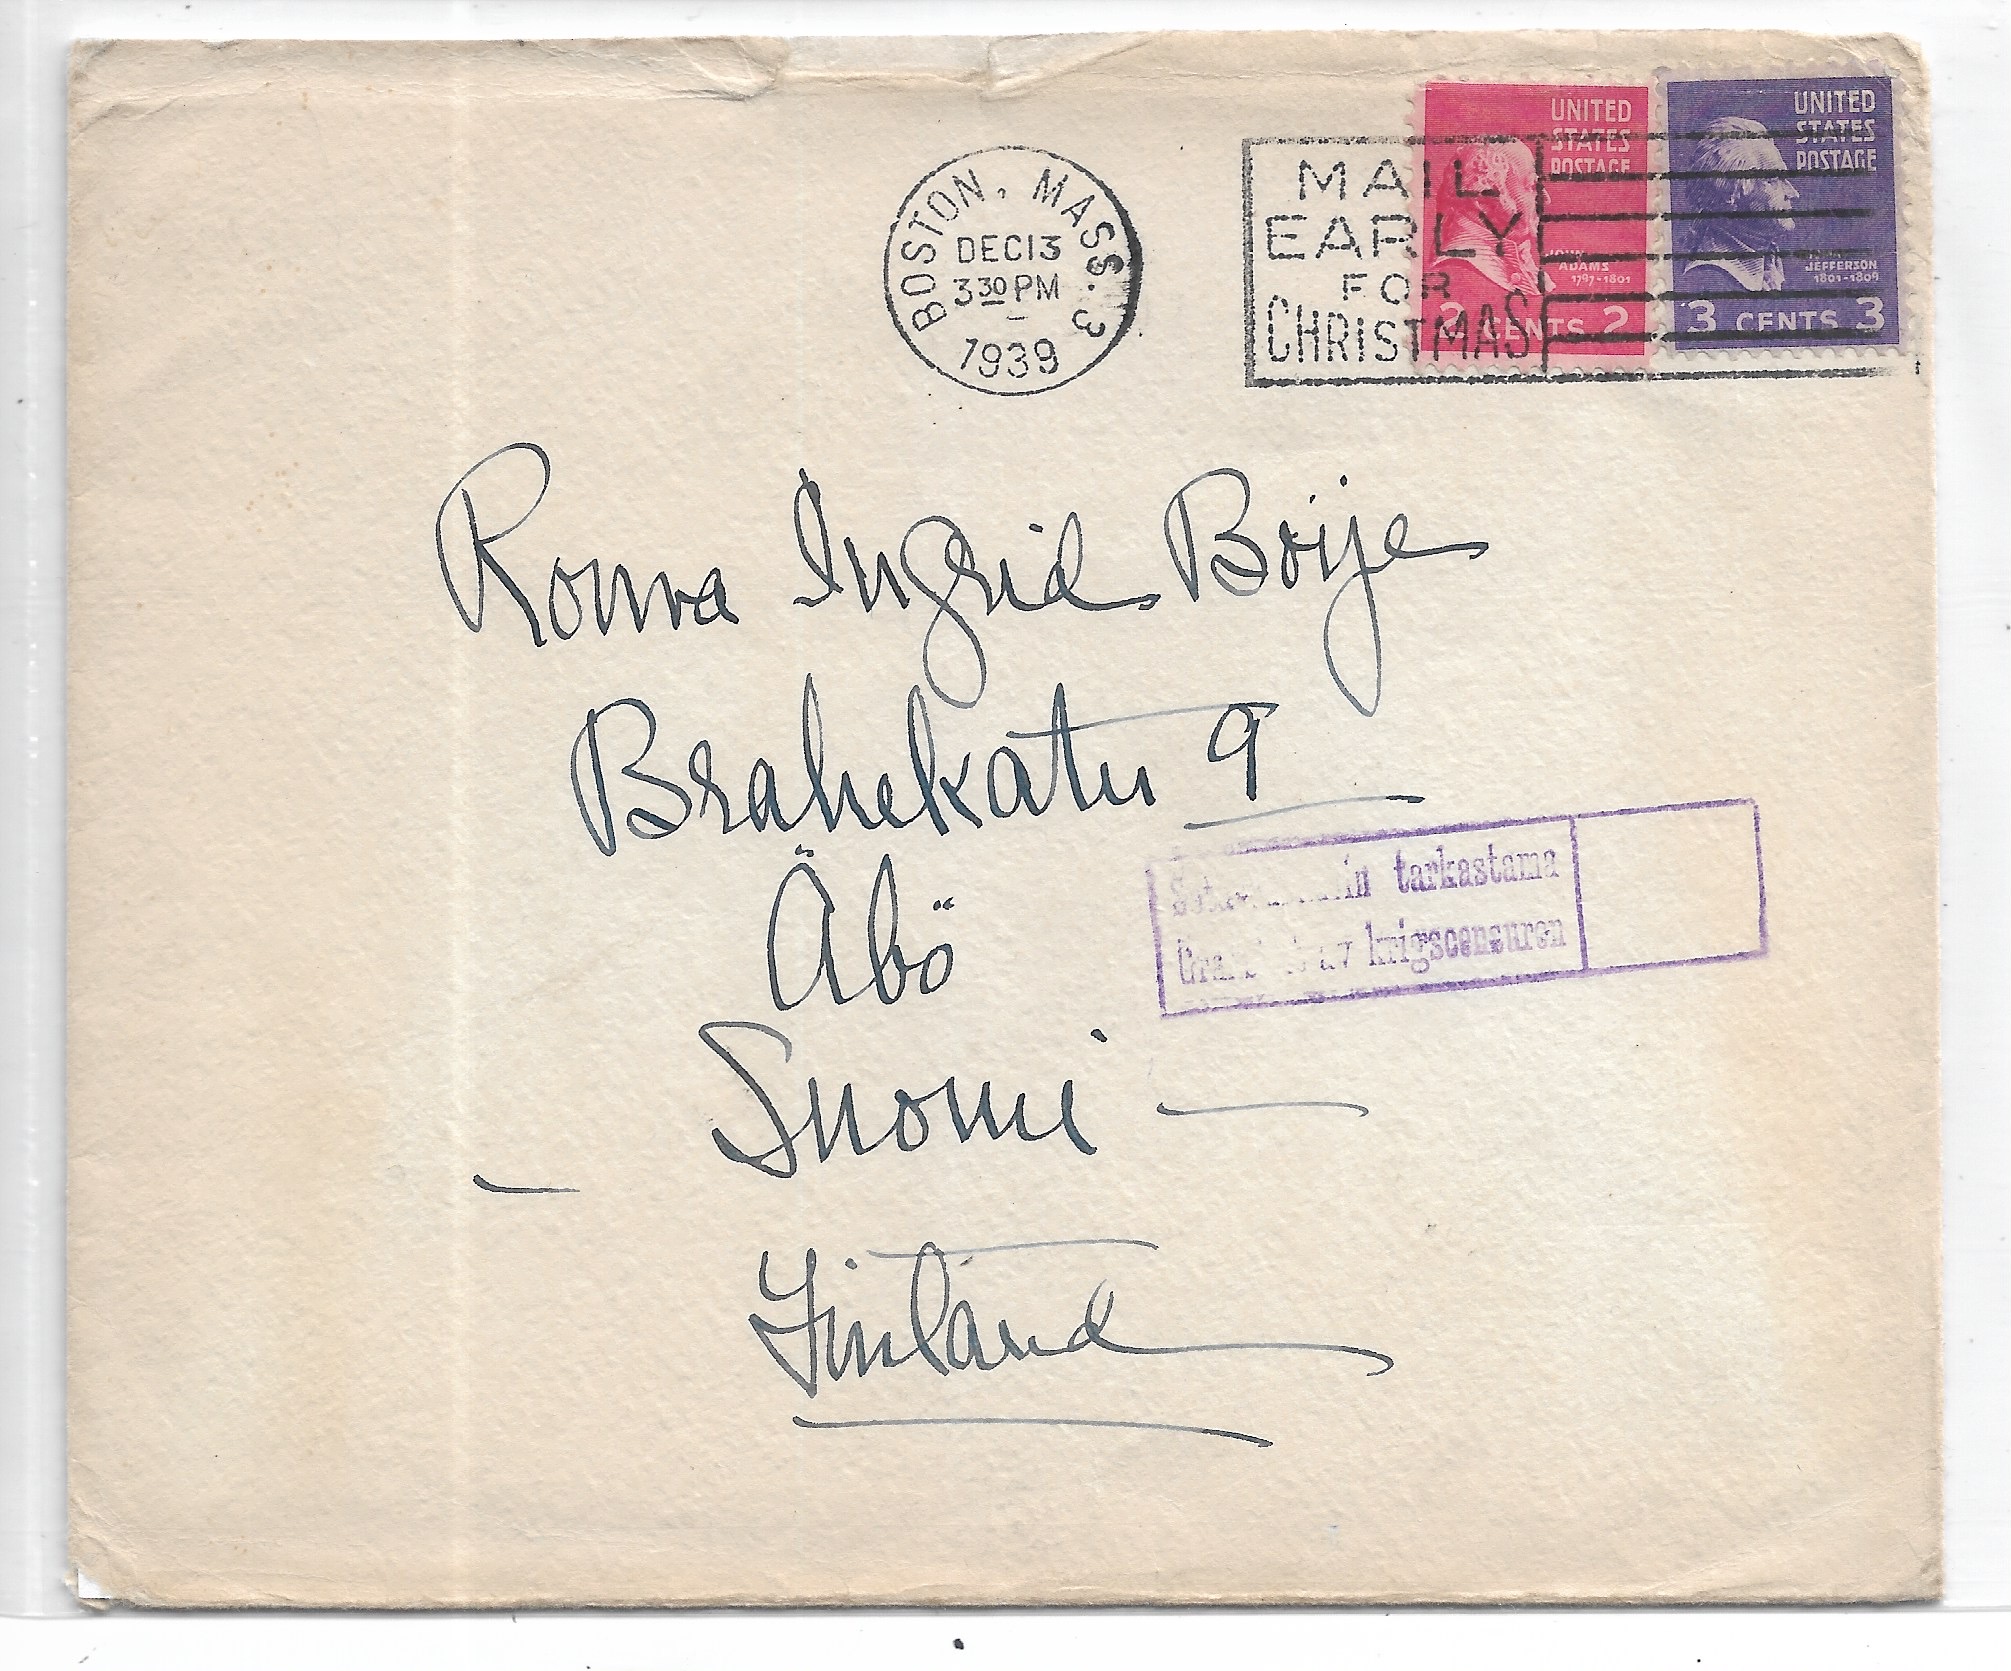 BOSTON, MASS. 3
DEC 13
3 30 PM
1939
MAIL
EARLY
FOR
CHRISTMAS
UNITED
STATES
POSTAGE
JOHN
ADAMS
1797-1801
2 CENTS 2
UNITED
STATES
POSTAGE
JEFFERSON
1801-1809
3 CENTS 3
Rouva Ingrid Boije
Brahekatu 9
Äbö
Suomi
Finland
tarkastama
av krigscensuren